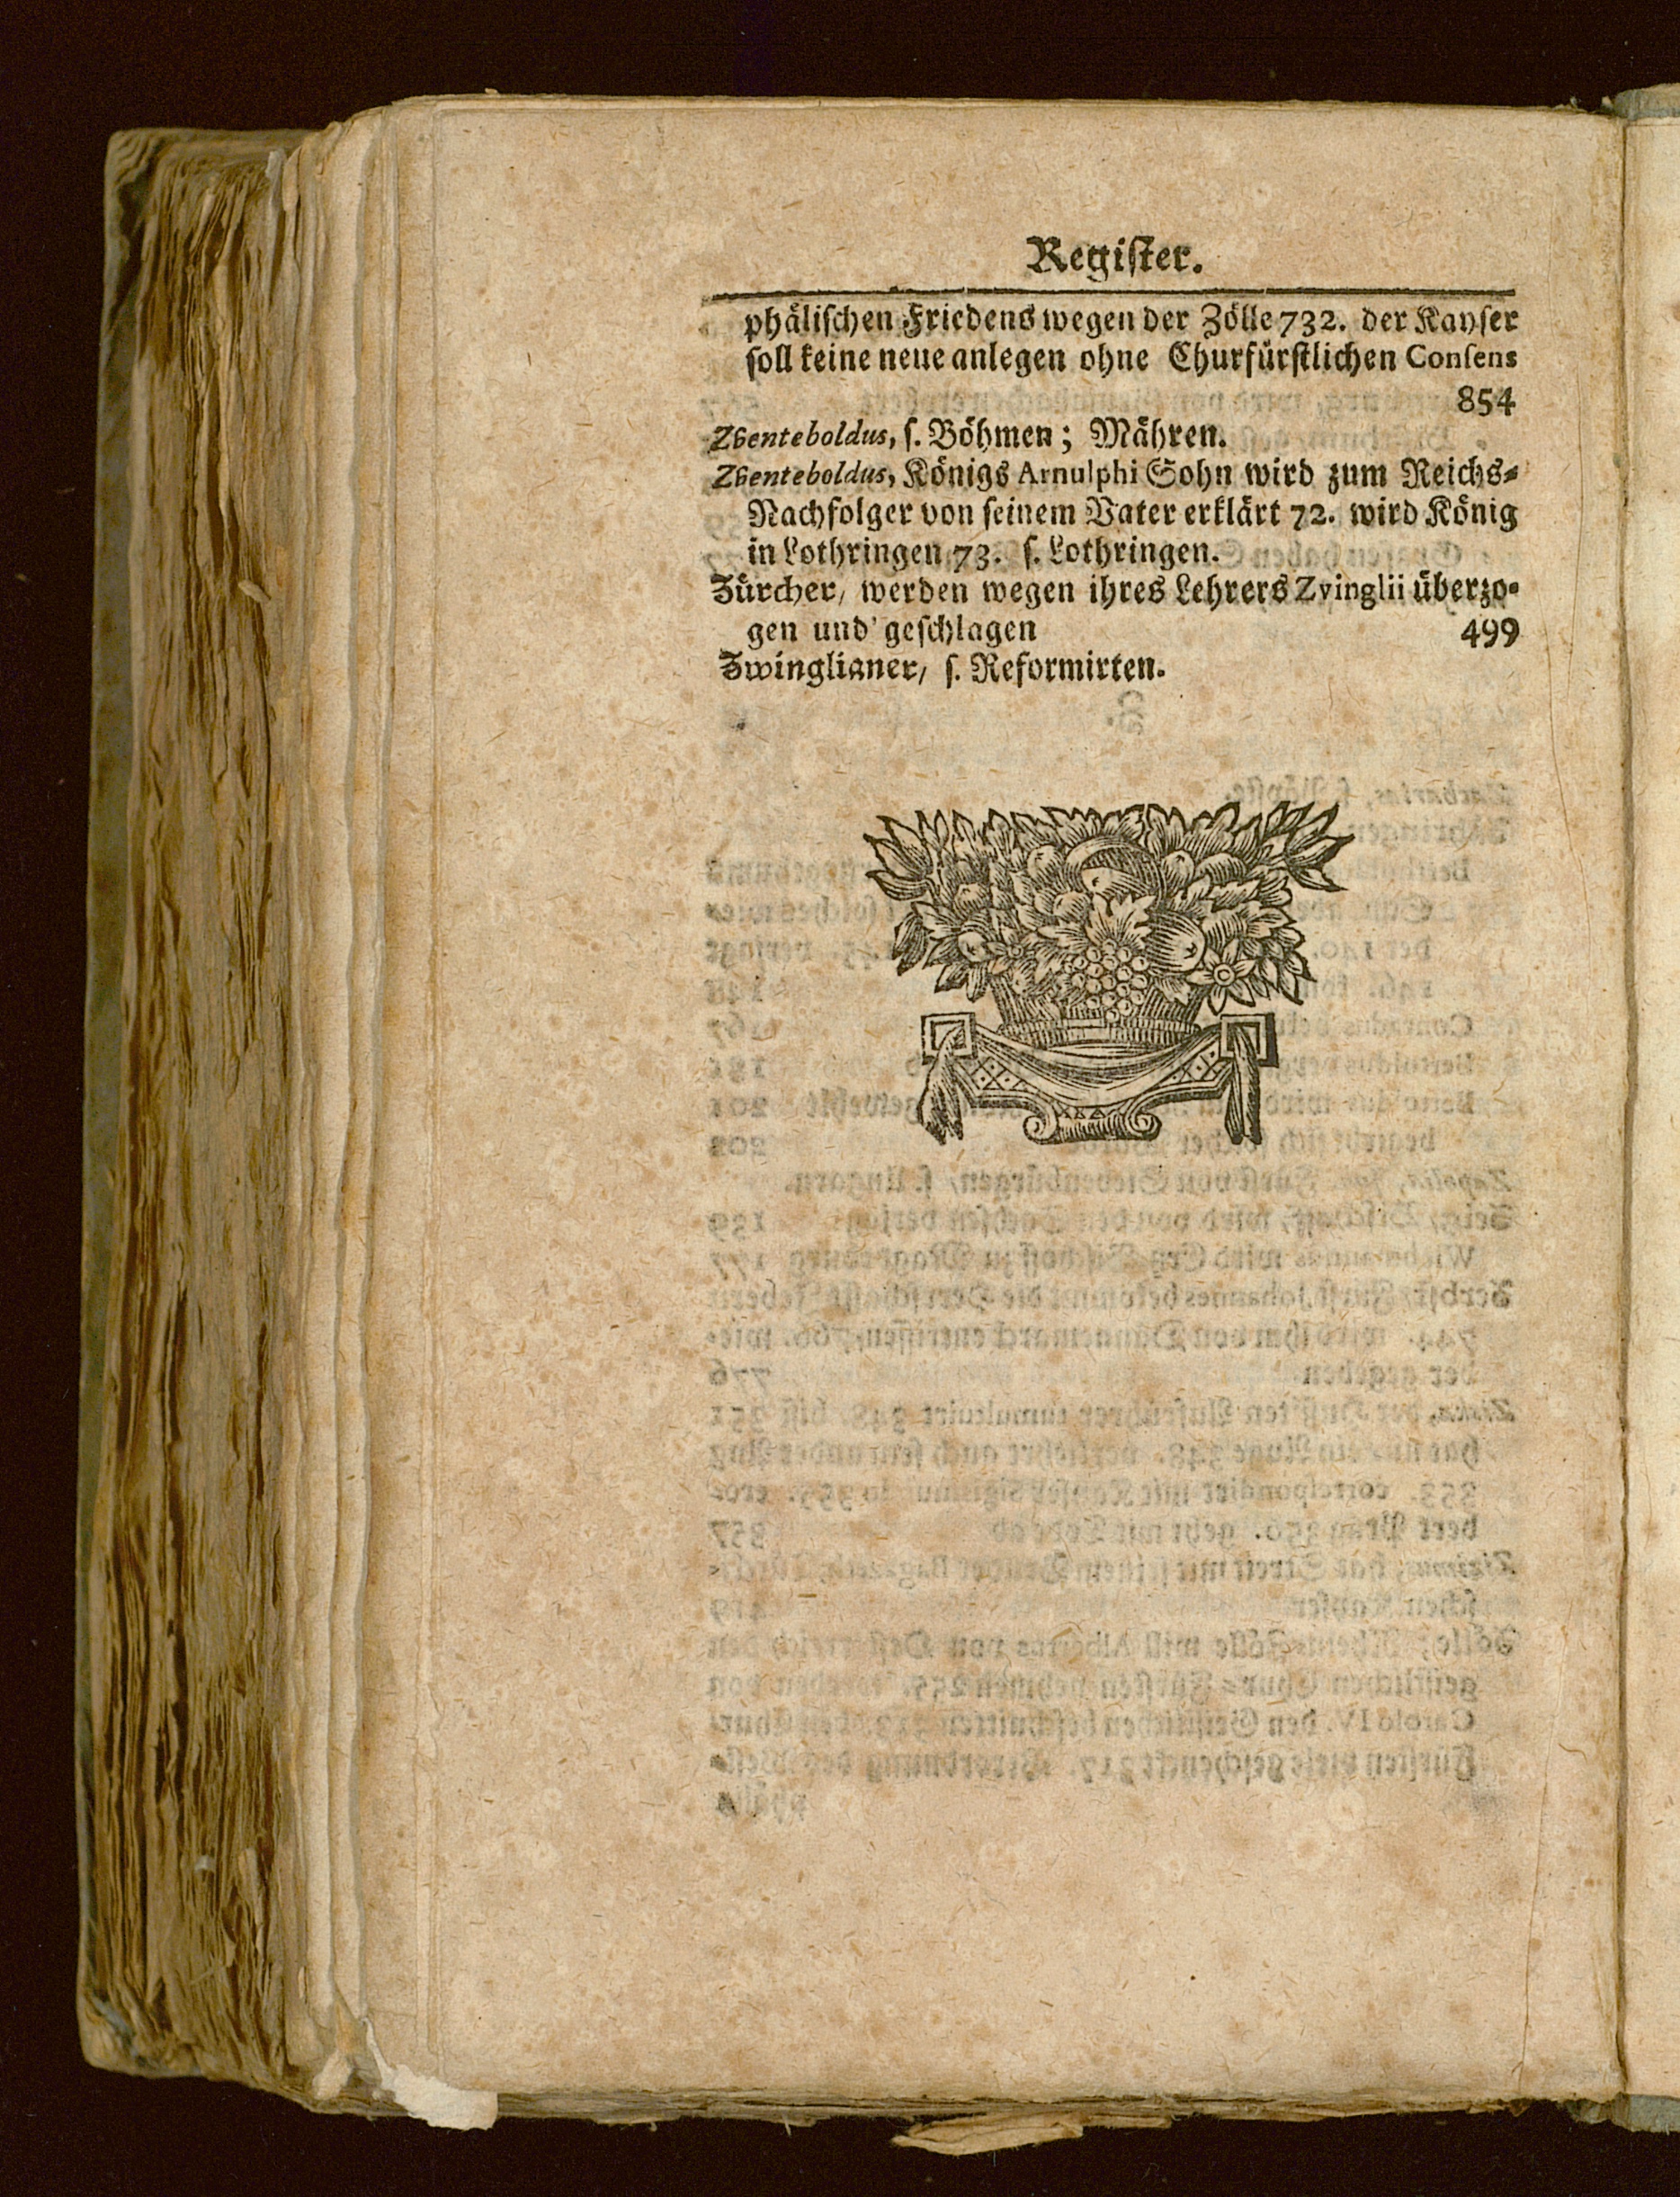 Regiſter.
phåliſchen Friedens wegen der Zölle 732. der Kayſer
ſoll keine neue anlegen ohne Churfürſtlichen Conſens
854
Zventeboldus, ſ. Böhmen; Mähren.
Zventeboldus, Königs Arnulphi Sohn wird zum Reichs-
Nachfolger von ſeinem Vater erklärt 72. wird König
in Lothringen 73. ſ. Lothringen.
Zürcher, werden wegen ihres Lehrers Zvinglii überzo-
gen und geſchlagen 499
Zwinglianer, ſ. Reformirten.